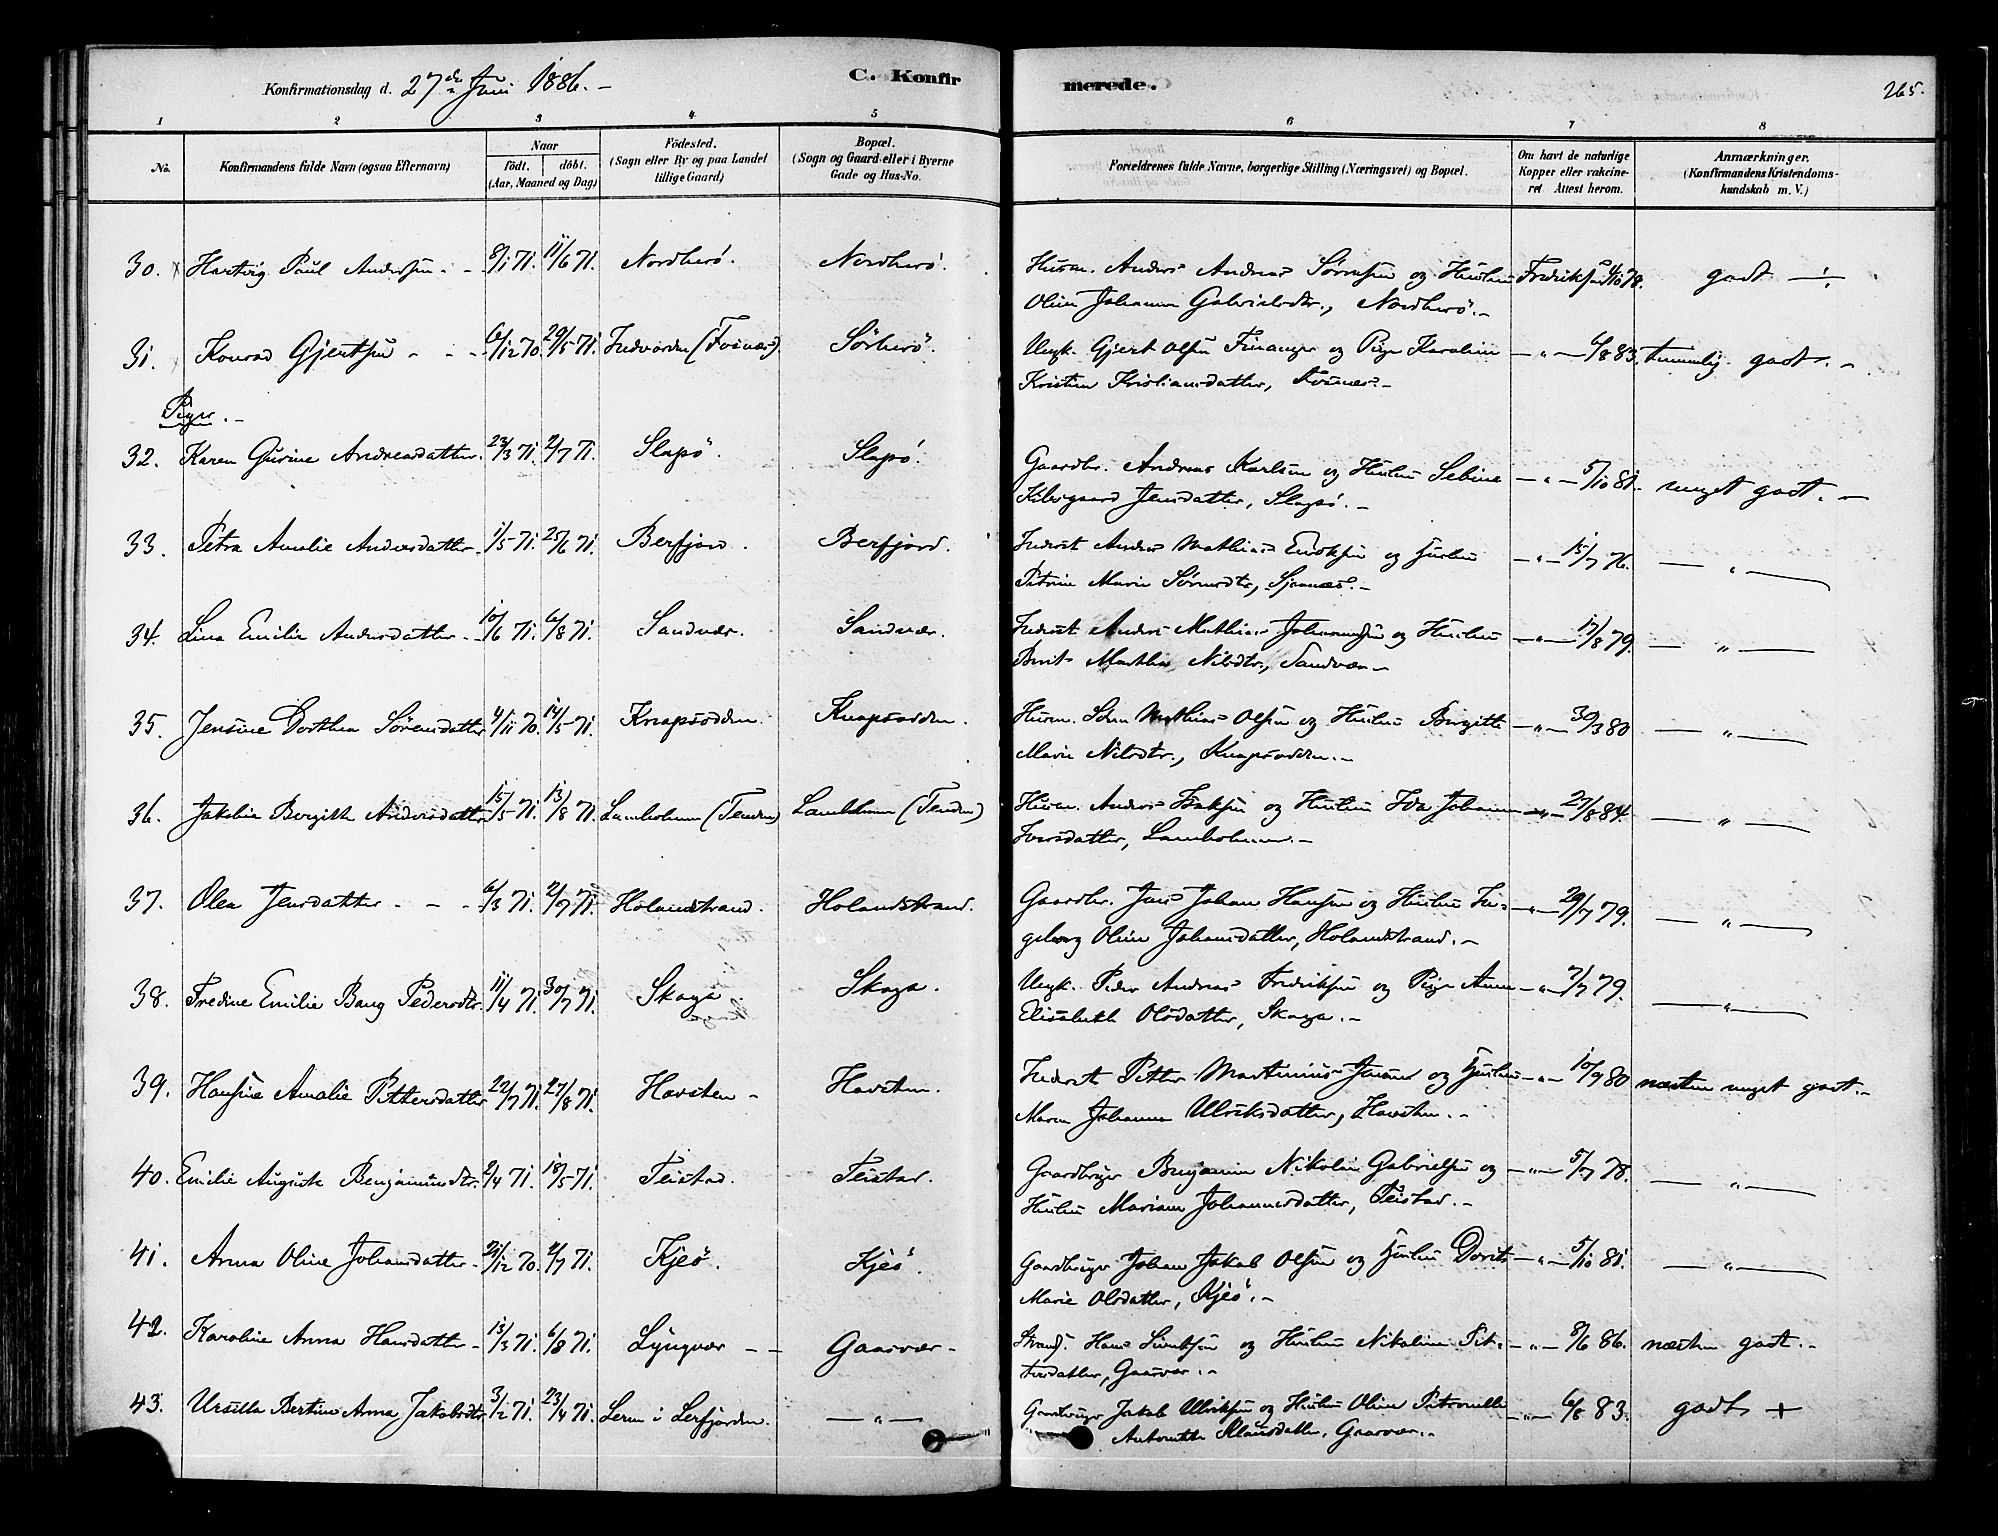 Konfirmationsdag d. 27de Juni 1886.-
C. Konfirmerede.
265.
1 2 3 4 5 6 7 8
No. Konfirmandens fulde Navn (ogsaa Efternavn) Naar født. døbt. (Aar, Maaned og Dag) Födested. (Sogn eller By og paa Landet tillige Gaard) Bopæl. (Sogn og Gaard eller i Byerne Gade og Hus-No. Forældrenes fulde Navne, borgerlige Stilling (Næringsvei) og Bopæl. Om havt de naturlige Kopper eller vakcineret Attest herom. Anmærkninger. (Konfirmandens Kristendomskundskab m. V.)
30. Hartvig Paul Andersen - 8/1 71. 11/6 71. Nordherö. Nordherö. Husm. Anders Andreas Sörensen og Hustru 78. godt -
Oline Johanna Gabrielsdtr., Nordherö.-
31. Konrad Gjertsen - - - 6/12 70. 29/5 71. Sörherö. Ungk. Gjert Olsen Finanger og Pige Karoline - " - 6/8 83. temmelig godt. -
Kristine Kristiansdatter,
Piger.-
32. Karen Gurine Andreasdatter. 23/3 71. 2/7 71. Slapö. Slapö. Gaardbr. Andreas Karlsen og Hustru Sebine - " - 5/10 81. meget godt. -
Jensdatter, Slapö. -
33. Petra Amalie Andersdatter. 1/5 71. 25/6 71. Berfjord. Berfjord. Inderst Anders Mathias Enoksen og Hustru - " - 15/7 76. - " -
Petrine Marie Sörensdtr,
34. Lina Emilie Andersdatter.- 10/6 71. 6/8 71. Sandvær. Sandvær. Inderst Anders Mathias Johannessen og Hustru - " - 17/8 79. - " -
Berit Martha Nilsdtr., Sandvær.-
35. Jensine Dorthea Sörensdatter 4/11 70. 14/5 71. Knapsodden. Knapsodden. Husm. Sören Mathias Olsen og Hustru Birgitte - " - 30/3 80 - " -
Marie Nilsdtr., Knapsodden.-
36. Jakobine Bergitte Andersdatter 15/5 71. 13/8 71. Lamholmen (Tenden) Lamholmen (Tenden) Husm. Anders Isaksen og Hustru Ida Johanna - " - 27/8 84. - " -
Iversdatter, Lamholmen.-
37. Olea Jensdatter - - - 6/3 71. 2/7 71. Holandstrand. Holandstrand. Gaardbr. Jens Johan Hansen og Hustru In- - " - 29/7 79. - " -
geborg Oline Johansdatter, Holandstrand.-
38. Fredine Emilie Bang Pedersdtr. 11/4 71. 30/7 71. Skaga. Skaga. Ungk. Peder Andreas Fredriksen og Pige Anne - " - 7/7 79. - " -
Elisabeth Olsdatter, Skaga.-
39. Hansine Amalie Pettersdatter 22/7 71. 27/8 71. Havsten - Havsten. Inderst Petter Martinus Jensen og Hustru - " - 10/9 80 næsten meget godt.-
Maren Johanna Ulriksdatter, Havsten.-
40. Emilie Auguste Benjaminsdtr. 2/4 71. 18/5 71. Teistad. Teistad. Gaardbruger Benjamin Nikolai Gabrielsen og - " - 5/7 78. - " -
Hustru Mariane Johannesdatter, Teistad.-
41. Anna Oline Johansdatter. 21/12 70. 2/7 71. Kjeö. Kjeö. Gaardbruger Johan Jakob Olsen og Hustru Dorit - " - 5/10 81. - " -
Marie Olsdatter, Kjeö.-
42. Karoline Anna Hansdatter - 13/3 71. 6/8 71. Lyngvær - - Gaasvær - Strands. Hans og Hustru Nikoline Pet- - " - 8/6 86. næsten godt.-
tersdatter, Gaasvær.-
43. Ursilla Bertine Anna Jakobsdtr 3/2 71. 23/4 71. Leren i Lerfjorden. - " - Gaardbruger Jakob Ulriksen og Hustru Oline Petronelle - " - 6/8 83. godt +
Antonette Klausdatter, Gaasvær.-